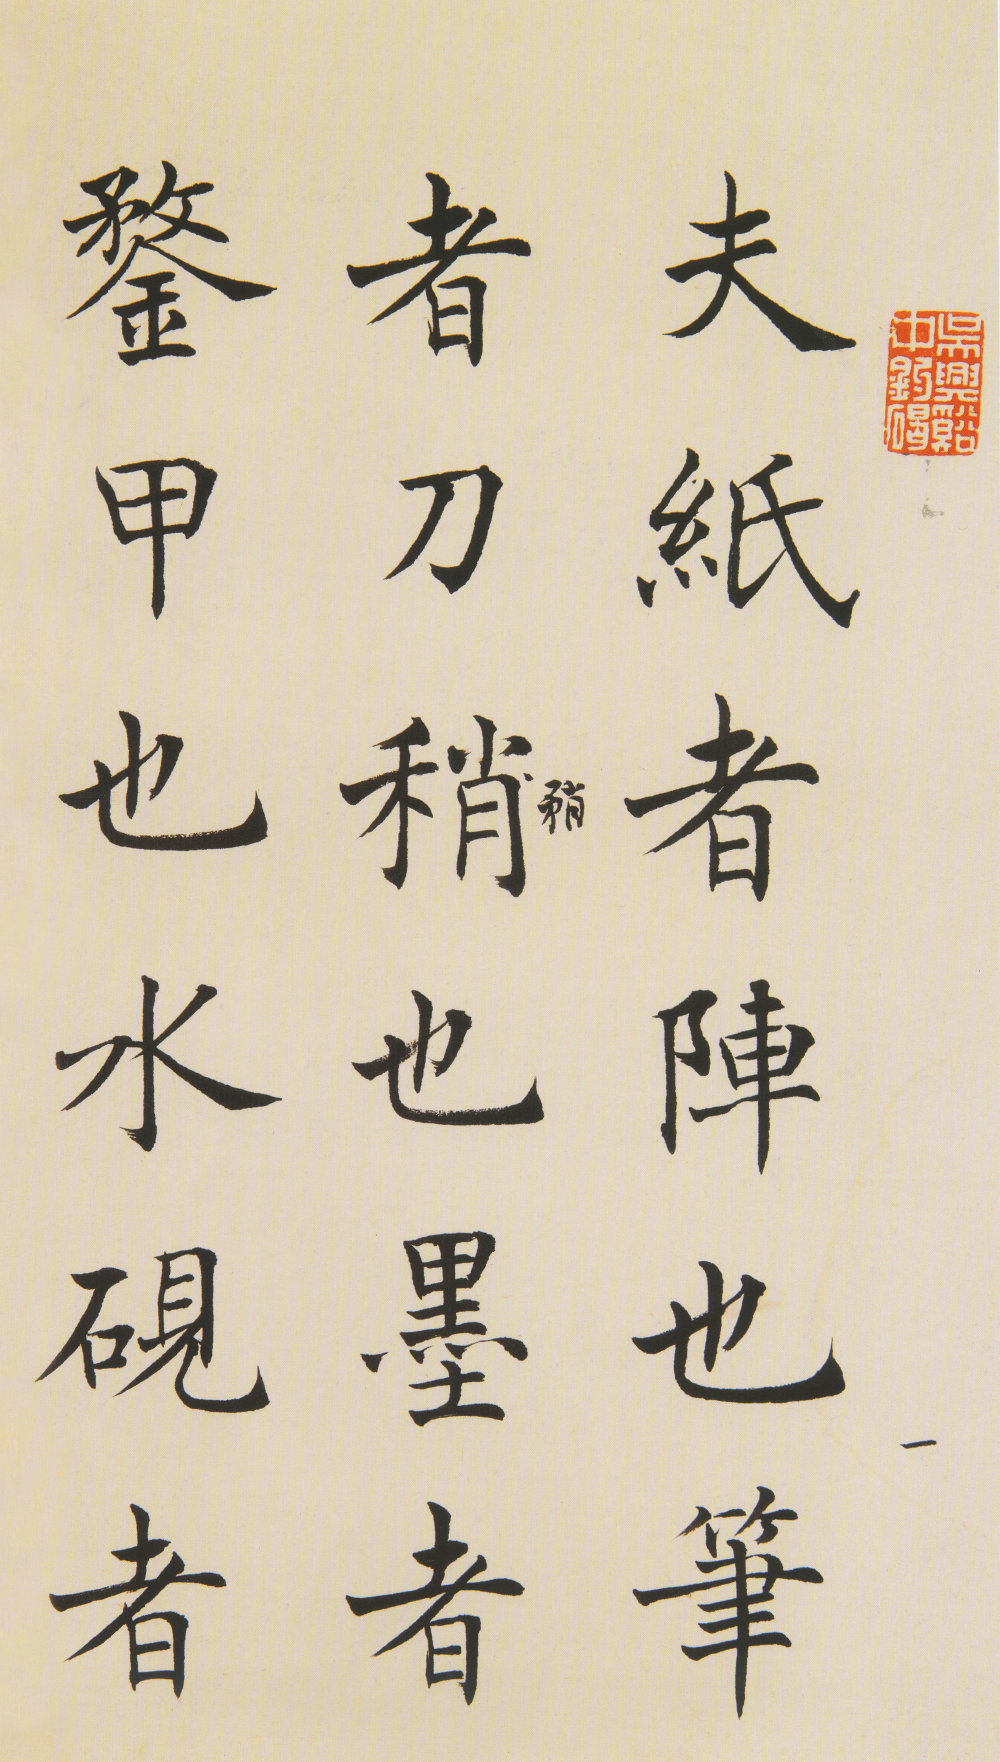 吳興谿
中釣碣
一
夫紙者陣也筆
者刀稍也墨者
矟
鍪甲也水硯者